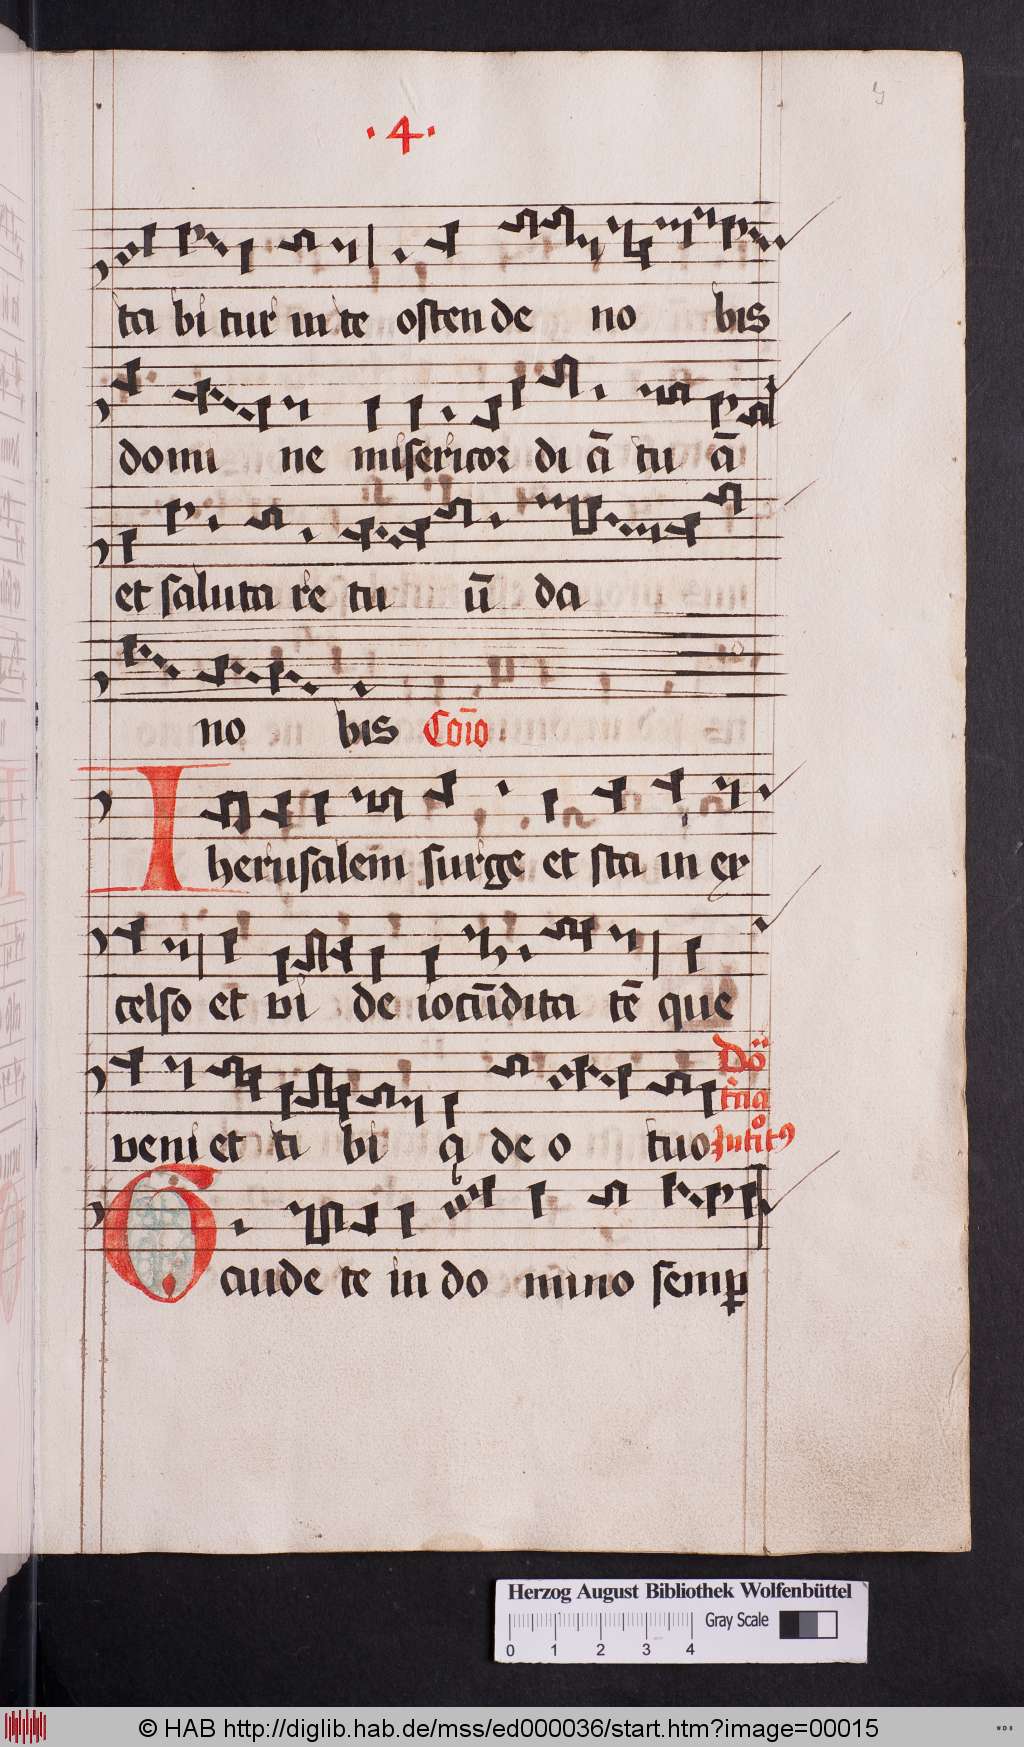 · 4 ·
5
ta bi tur in te osten de no bis
domi ne misericor di ā tu ā
et saluta re tu ū da
no bis Cōīo
Iherusalem surge et sta in ex
celso et vi de iocūdita tē que
veni et ti bi q de o tuo
Gaude te in do mino semꝑ
Herzog August Bibliothek Wolfenbüttel
Gray Scale
0 1 2 3 4
© HAB http://diglib.hab.de/mss/ed000036/start.htm?image=00015